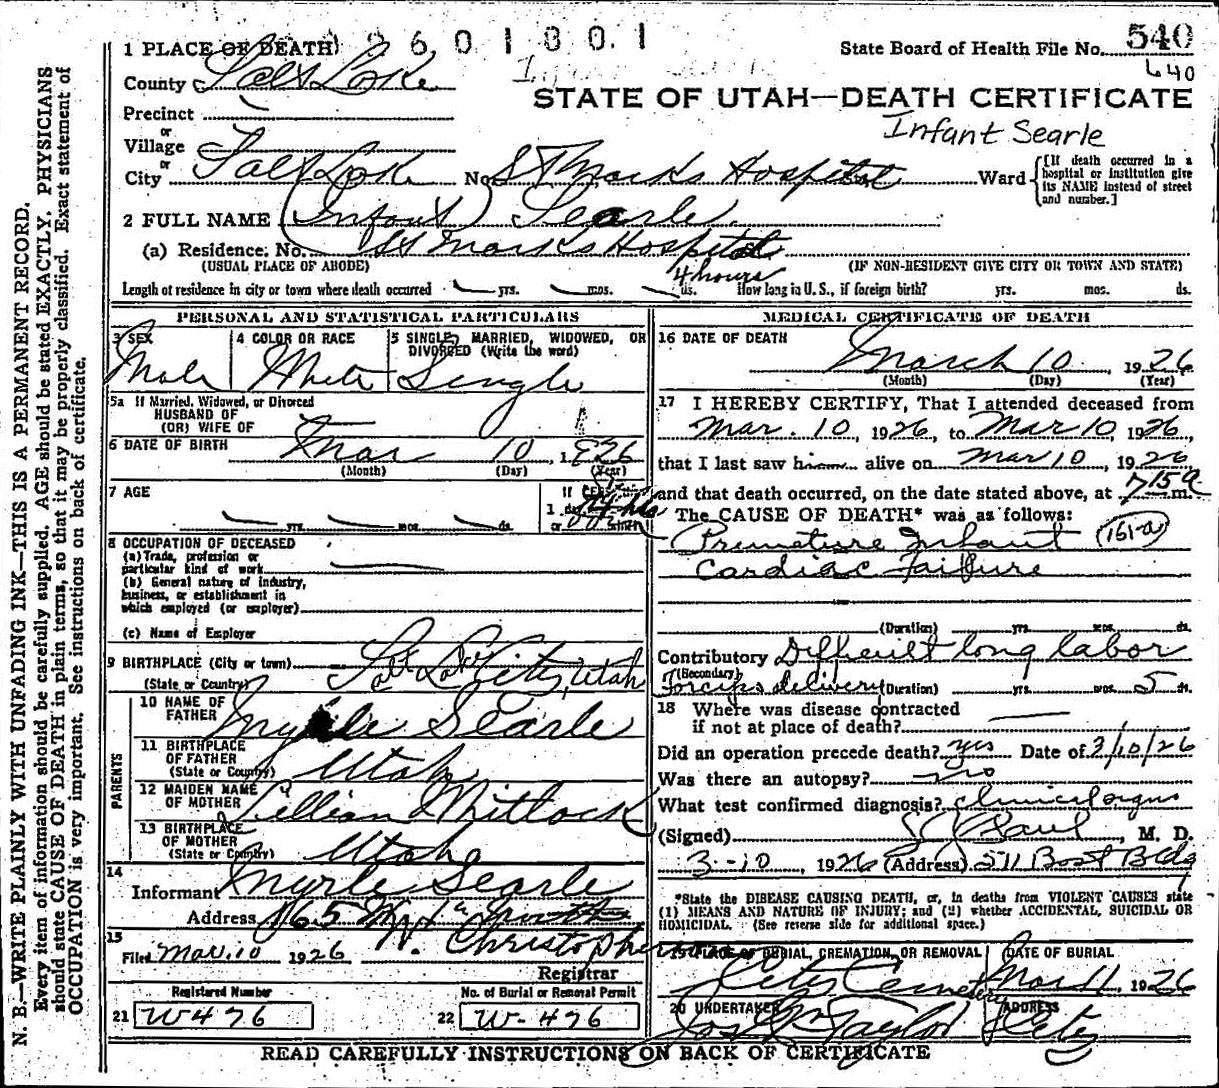 2601801
540
1 PLACE OF DEATH
State Board of Health File No.
640
County Salt Lake
STATE OF UTAH—DEATH CERTIFICATE
Precinct
Infant Searle
or
Village
or
City Salt Lake No. St Marks Hospital Ward
[If death occurred in a hospital or institution give its NAME instead of street and number.]
2 FULL NAME (Infant) Searle
(a) Residence: No. St Marks Hospital
(USUAL PLACE OF ABODE) (IF NON-RESIDENT GIVE CITY OR TOWN AND STATE)
4 hours
Length of residence in city or town where death occurred yrs. mos. ds. How long in U. S., if foreign birth? yrs. mos. ds.
PERSONAL AND STATISTICAL PARTICULARS
3 SEX
Male
4 COLOR OR RACE
White
5 SINGLE, MARRIED, WIDOWED, OR DIVORCED (Write the word)
Single
5a If Married, Widowed, or Divorced
HUSBAND OF
(OR) WIFE OF
6 DATE OF BIRTH Mar 10, 1926
(Month) (Day) (Year)
7 AGE
yrs. mos. ds.
If LESS than
1 day 4 hrs
or min.
8 OCCUPATION OF DECEASED
(a) Trade, profession or
particular kind of work
(b) General nature of industry,
business, or establishment in
which employed (or employer)
(c) Name of Employer
9 BIRTHPLACE (City or town) Salt Lake City, Utah
(State or Country)
PARENTS
10 NAME OF
FATHER Myrle Searle
11 BIRTHPLACE
OF FATHER
(State or Country) Utah
12 MAIDEN NAME
OF MOTHER Lillian Mitlock
13 BIRTHPLACE
OF MOTHER
(State or Country) Utah
14
Informant Myrle Searle
Address 165
15
Filed Mar. 10 1926 Christopherson
Registrar
Registered Number
21 W476
No. of Burial or Removal Permit
22 W-476
MEDICAL CERTIFICATE OF DEATH
16 DATE OF DEATH
March 10, 1926
(Month) (Day) (Year)
17 I HEREBY CERTIFY, That I attended deceased from
Mar. 10, 1926, to Mar 10, 1926,
that I last saw him alive on Mar 10, 1926
and that death occurred, on the date stated above, at 7 15 a m.
The CAUSE OF DEATH* was as follows:
Premature Infant (161-a)
Cardiac Failure
(Duration) yrs. mos. ds.
Contributory Difficult long labor
(Secondary)
Forceps delivery (Duration) yrs. mos. 5 ds.
18 Where was disease contracted
if not at place of death?
Did an operation precede death? yes Date of 3/10/26
Was there an autopsy? no
What test confirmed diagnosis? Clinical signs
(Signed) Paul, M. D.
3-10, 1926 (Address) 511 Bost Bldg
*State the DISEASE CAUSING DEATH, or, in deaths from VIOLENT CAUSES state
(1) MEANS AND NATURE OF INJURY; and (2) whether ACCIDENTAL, SUICIDAL OR
HOMICIDAL. (See reverse side for additional space.)
19 PLACE OF BURIAL, CREMATION, OR REMOVAL
City Cemetery
DATE OF BURIAL
Mar 11, 1926
20 UNDERTAKER
Taylor
ADDRESS
City
READ CAREFULLY INSTRUCTIONS ON BACK OF CERTIFICATE
N. B.—WRITE PLAINLY WITH UNFADING INK—THIS IS A PERMANENT RECORD.
Every item of information should be carefully supplied. AGE should be stated EXACTLY. PHYSICIANS
should state CAUSE OF DEATH in plain terms, so that it may be properly classified. Exact statement of
OCCUPATION is very important. See instructions on back of certificate.